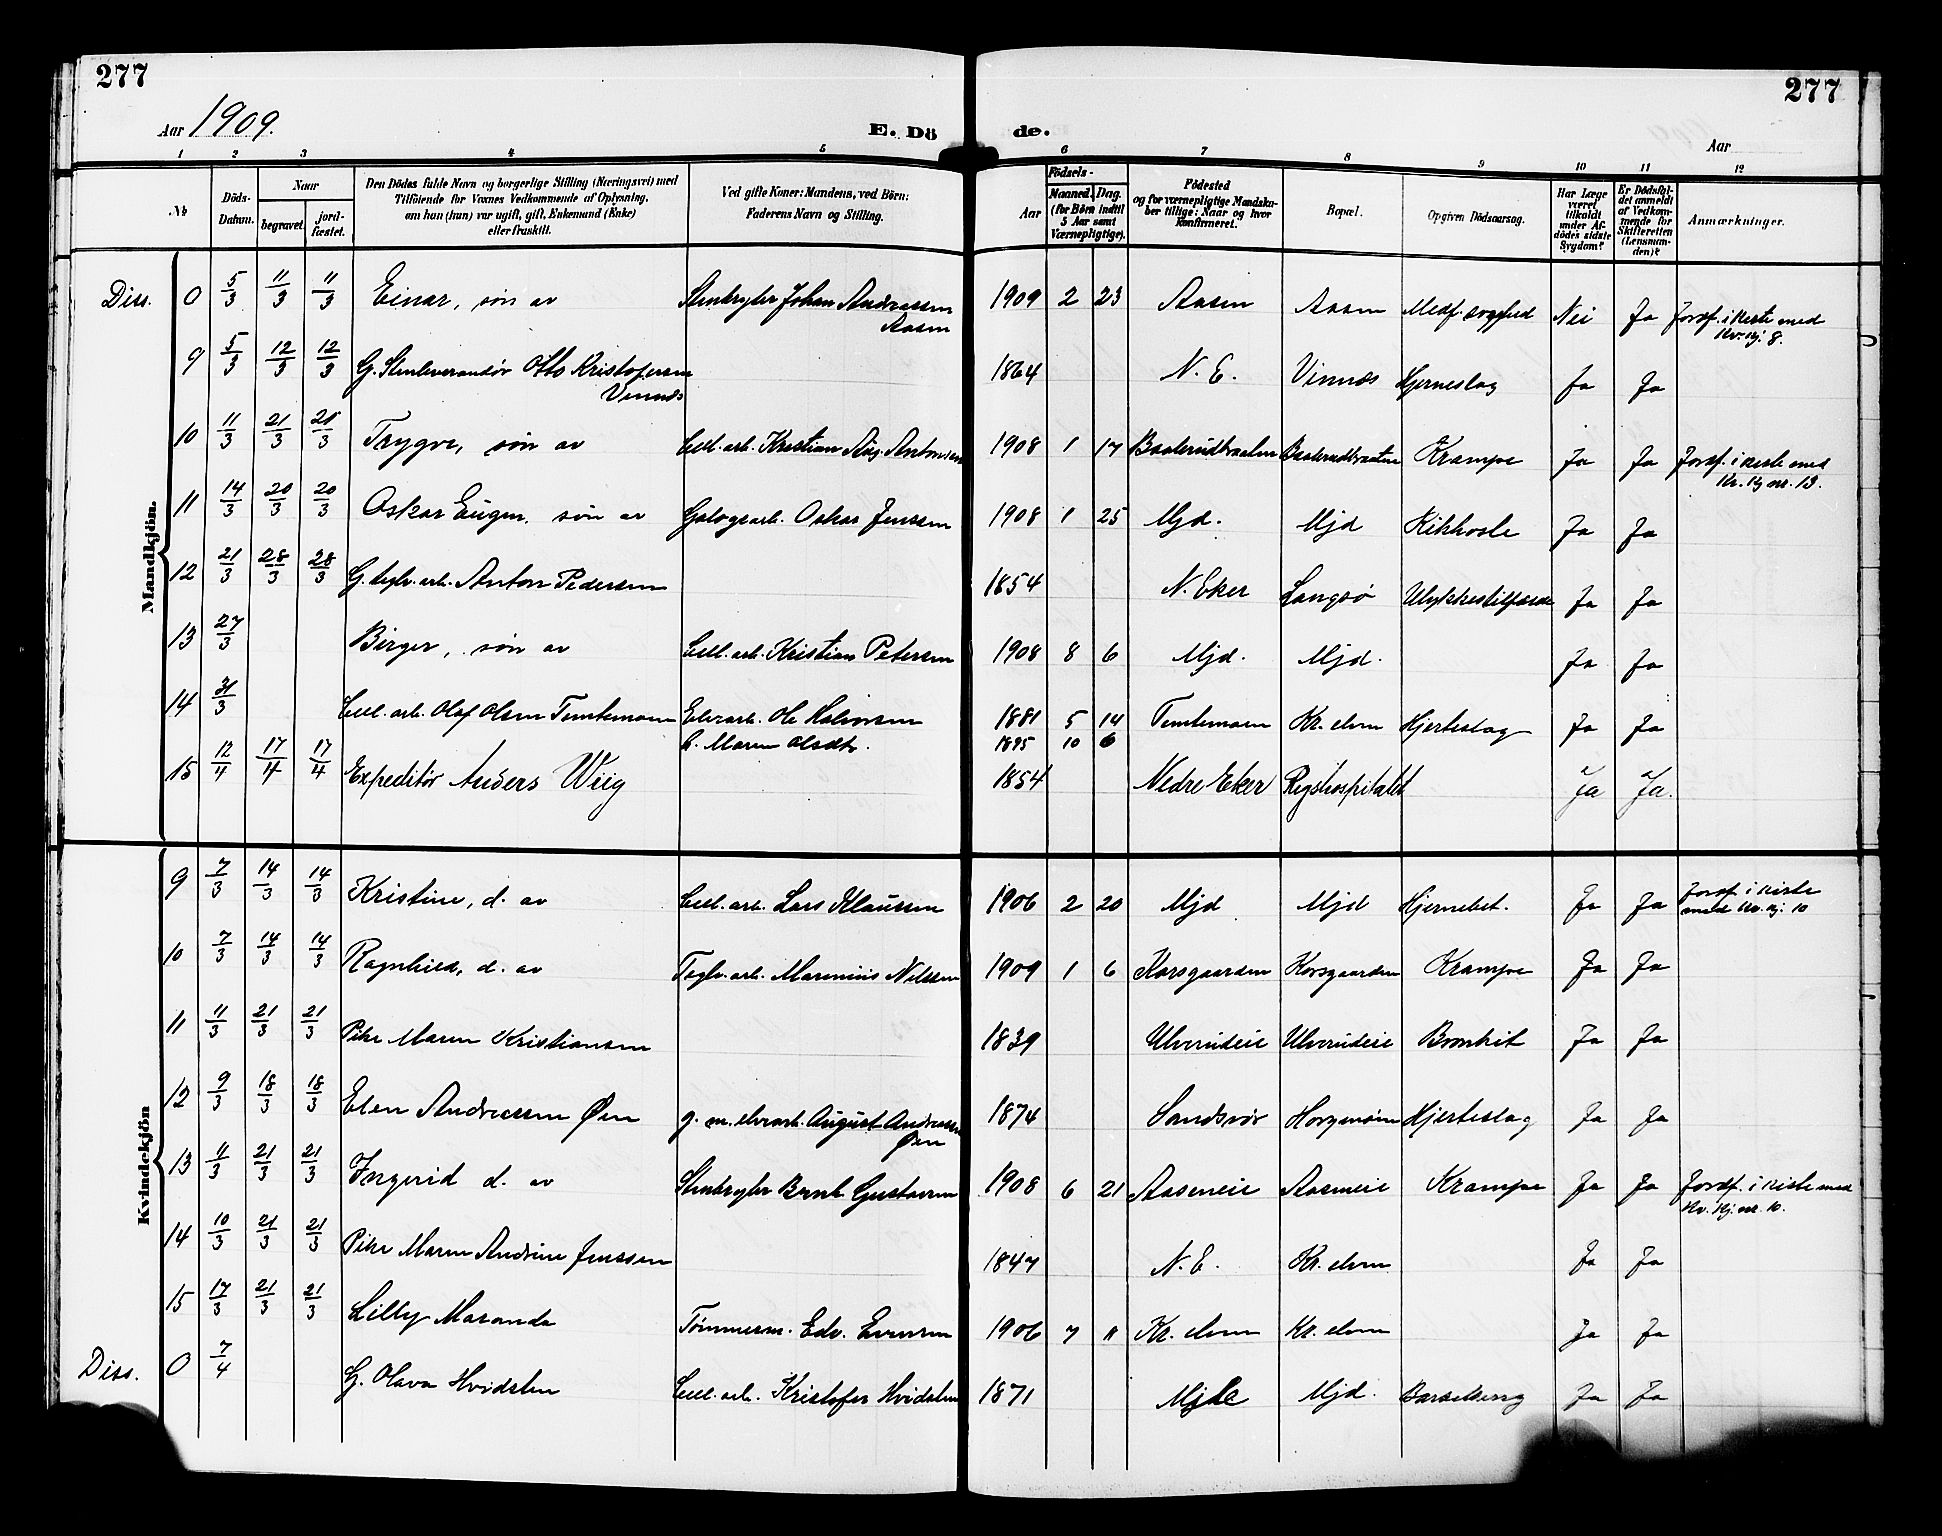 277
277
Aar 1909.
E. Dö
de.
Aar
1 2 3 4 5 6 7 8 9 10 11 12
№
Döds-Datum.
Naar
begravet.
jord-fæstet.
Den Dödes fulde Navn og borgerlige Stilling (Næringsvei) med
Tilföiende for Voxnes Vedkommende af Oplysning,
om han (hun) var ugift, gift, Enkemand (Enke)
eller fraskilt.
Ved gifte Koner: Mandens, ved Börn:
Faderens Navn og Stilling.
Födsels-
Aar
Maaned. Dag.
(for Börn indtil
5 Aar samt
Værnepligtige).
Födested
og for værnepligtige Mandska-
ber tillige: Naar og hvor
konfirmeret.
Bopæl.
Opgiven Dödsaarsag.
Har Læge
været
tilkaldt
under Af-
dödes sidste
Sygdom?
Er Dödsfal-
det anmeldt
af Vedkom-
mende for
Skifteretten
(Lensman-
den)?
Anmærkninger.
Mandkjön.
Diss. 0 5/3 11/3 11/3 Einar, søn av Stenhryter Johan Andreassen Aasen 1909 2 23 Aasen Aasen Medf. svaghed Nei Ja Jordf. i kiste med Kv. kj. 8.
9 5/3 12/3 12/3 G. Stenleverandør Otto Kristofersen Vinnæs 1864 N. E. Vinnæs Hjerneslag Ja Ja
10 11/3 21/3 21/3 Trygve, søn av Cell. arb. Kristian Aug. Antonsen 1908 1 17 Baalerudbraaten Baalerudbraaten Krampe Ja Ja Jordf. i kiste med Kv. kj nr. 13.
11 14/3 20/3 20/3 Oskar Eugen, søn av Gatelagearb. Oskar Jenssen 1908 1 25 Mjd. Mjd Kikhoste Ja Ja
12 21/3 28/3 28/3 G. teglv. arb. Anton Pedersen 1854 N. Eker Langsø Ulykkestilfælde Ja Ja
13 27/3 Birger, søn av Cell. arb. Kristian Petersen 1908 8 6 Mjd. Mjd. Ja Ja
14 31/3 Cell. arb. Olaf Olsen Temtemoen Elvearb. Ole Halvorsen 1881 5 14 Temtemoen Kr. elven Hjerteslag Ja Ja
h. Maren Olsdtr. 1895 10 6
15 12/4 17/4 17/4 Expeditør Anders Wiig 1854 Nedre Eker Rigshospitalet Ja Ja.
Kvindekjön
9 7/3 14/3 14/3 Kristine, d. av Cell. arb. Lars Klaussen 1906 2 20 Mjd Mjd Hjernebet. Ja Ja Jordf. i kiste med Kv. kj. 10
10 7/3 14/3 14/3 Ragnhild, d. av Teglv. arb. Marinius Nilssen 1909 1 6 Korsgaarden Korsgaarden Krampe Ja Ja
11 11/3 21/3 21/3 Pike Maren Kristiansen 1839 Ulverudeie Ulverudeie Bronkit Ja Ja
12 9/3 18/3 18/3 Elen Andreassen Øen g. m. elvearb. August Andreassen Øen 1874 Sandsvær Horgenmoen Hjerteslag Ja Ja
13 11/3 21/3 21/3 Ingerid d. av Stenhryter Bernt Gustavsen 1908 6 21 Aaseneie Aaseneie Krampe Ja Ja Jordf. i kiste med Kv. kj. nr. 10.
14 10/3 21/3 21/3 Pike Maren Andrine Jenssen 1847 N. E. Kr. elven Ja Ja
15 17/3 21/3 21/3 Lilly Maranda Tømmerm. Edv. Evensen 1906 7 11 Kr. elven Kr. elven Ja Ja
Diss. 0 7/4 G. Olava Hvidsten Cell. arb. Kristofer Hvidsten 1871 Mjd. Mjd. Barselseng Ja Ja